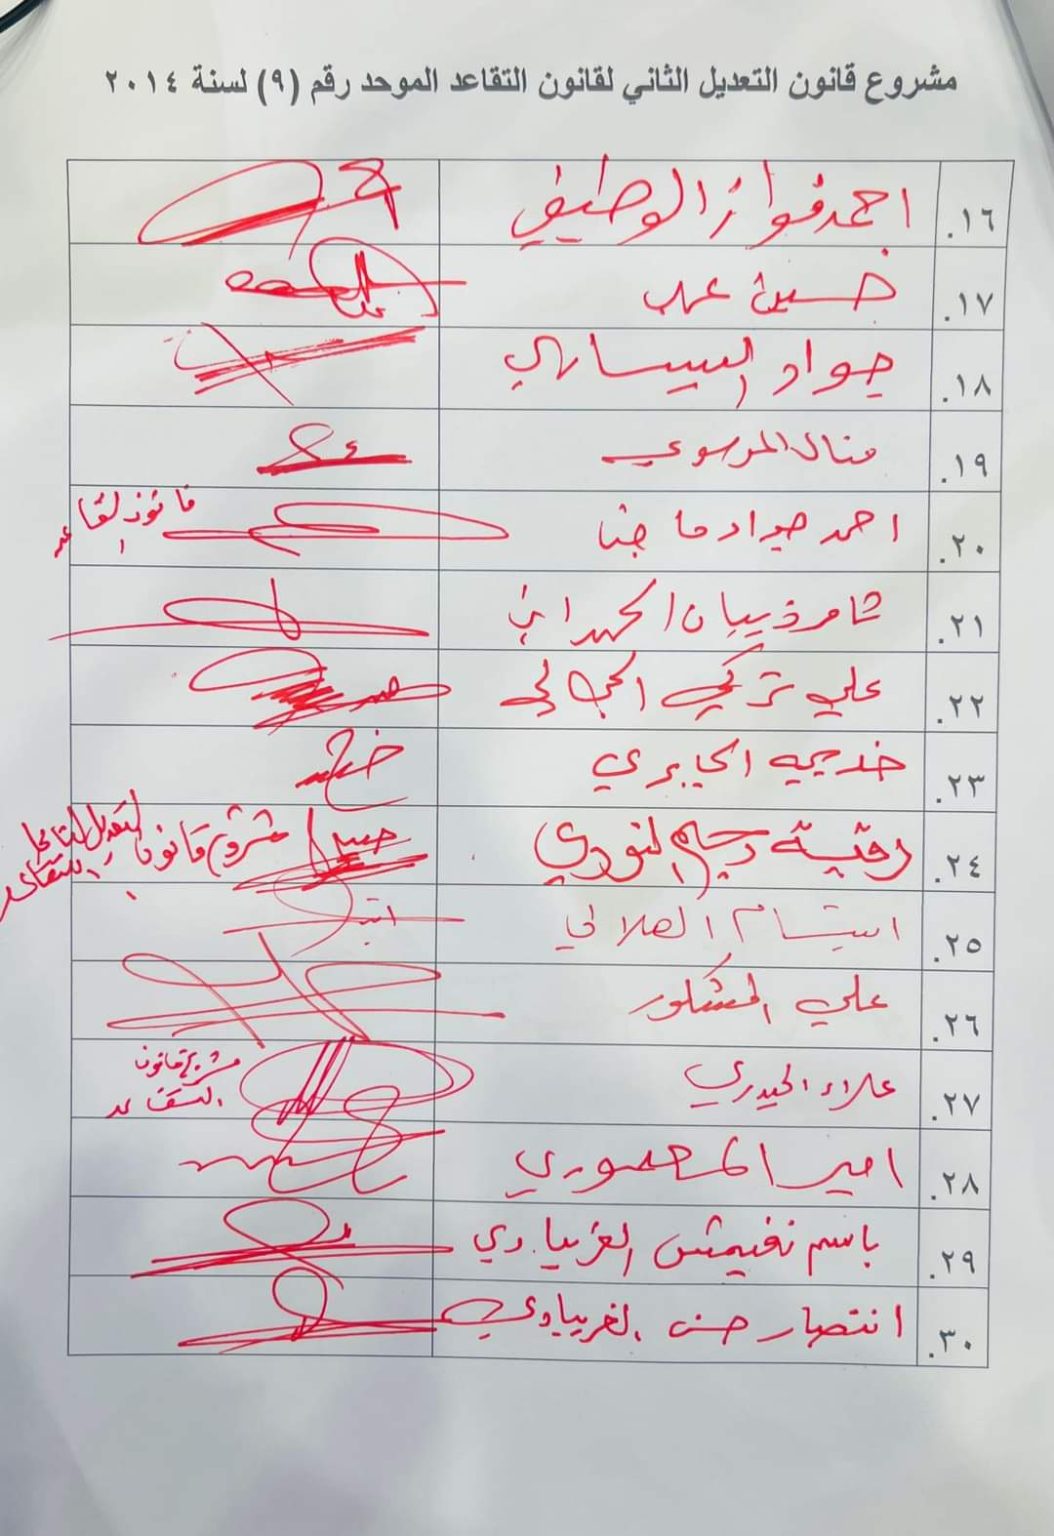 مشروع قانون التعديل الثاني لقانون التقاعد الموحد رقم (٩) لسنة ٢٠١٤
١٦. احمد فواز الوطيفي
١٧. حسين عرب
١٨. جواد
١٩. منال الموسوي
٢٠. احمد جواد
قانون التقاعد
٢١. ثامر ذيبان الحمداني
٢٢. علي تركي الجمالي
٢٣. خديجه الجابري
٢٤. رقية رحيم النوري
مشروع قانون التعديل
٢٥. ابتسام الهلالي
٢٦. علي المشكور
٢٧. علاء الحيدري
مشروع قانون
التقاعد
٢٨. امير المعموري
٢٩. باسم نغيمش الغريباوي
٣٠. انتصار حسن الغريباوي